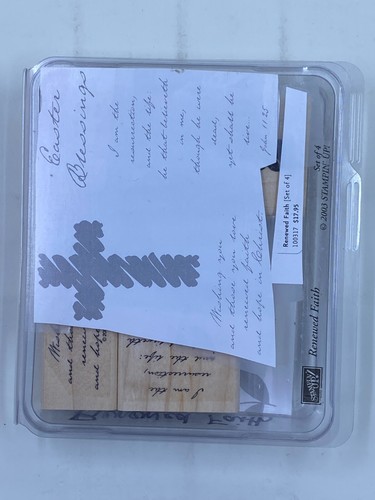 Easter
Blessings
I am the
resurrection,
and the life:
he that believeth
in me,
though he were
dead,
yet shall he
live.
Jon 11:25
Wishing you
and those you love
renewed faith
and hope in Christ.
Renewed Faith [Set of 4]
100317 $17.95
Set of 4
© 2003 STAMPIN' UP!
Renewed Faith
STAMPIN' UP!
and
renewed
and hope
I am the
resurrection,
and the life:
Renewed Faith